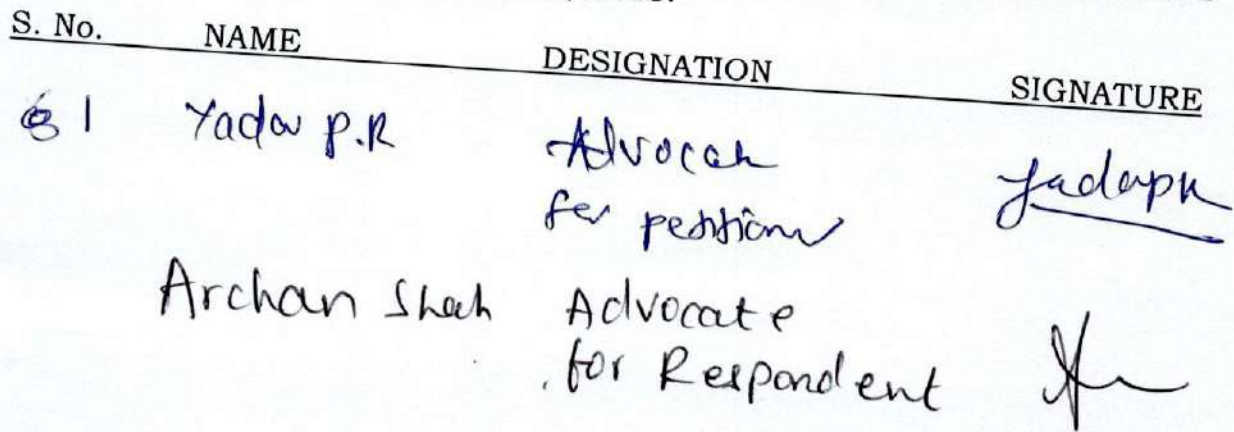 S. No. NAME DESIGNATION SIGNATURE
1 Yadav P.R Advocate
for petitioner
Archan Shah Advocate
for Respondent